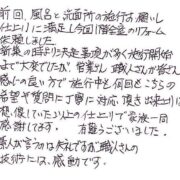 前回、風呂と洗面所の施行お願いし
仕上りに満足し今回1階全室のリフォーム
依頼しました。
新築の時より大変要望が多く施行開始
まで大変でしたが、営業さん、職人さんが皆さん
感じの良い方で施行中も何回もこちらの
希望や質問に丁寧に対応、頂き出来上りに
想像していた以上の仕上りで家族一同
感謝してます。有難うございました。
素人が言うのは失礼ですが職人さんの
技術には、感動です。